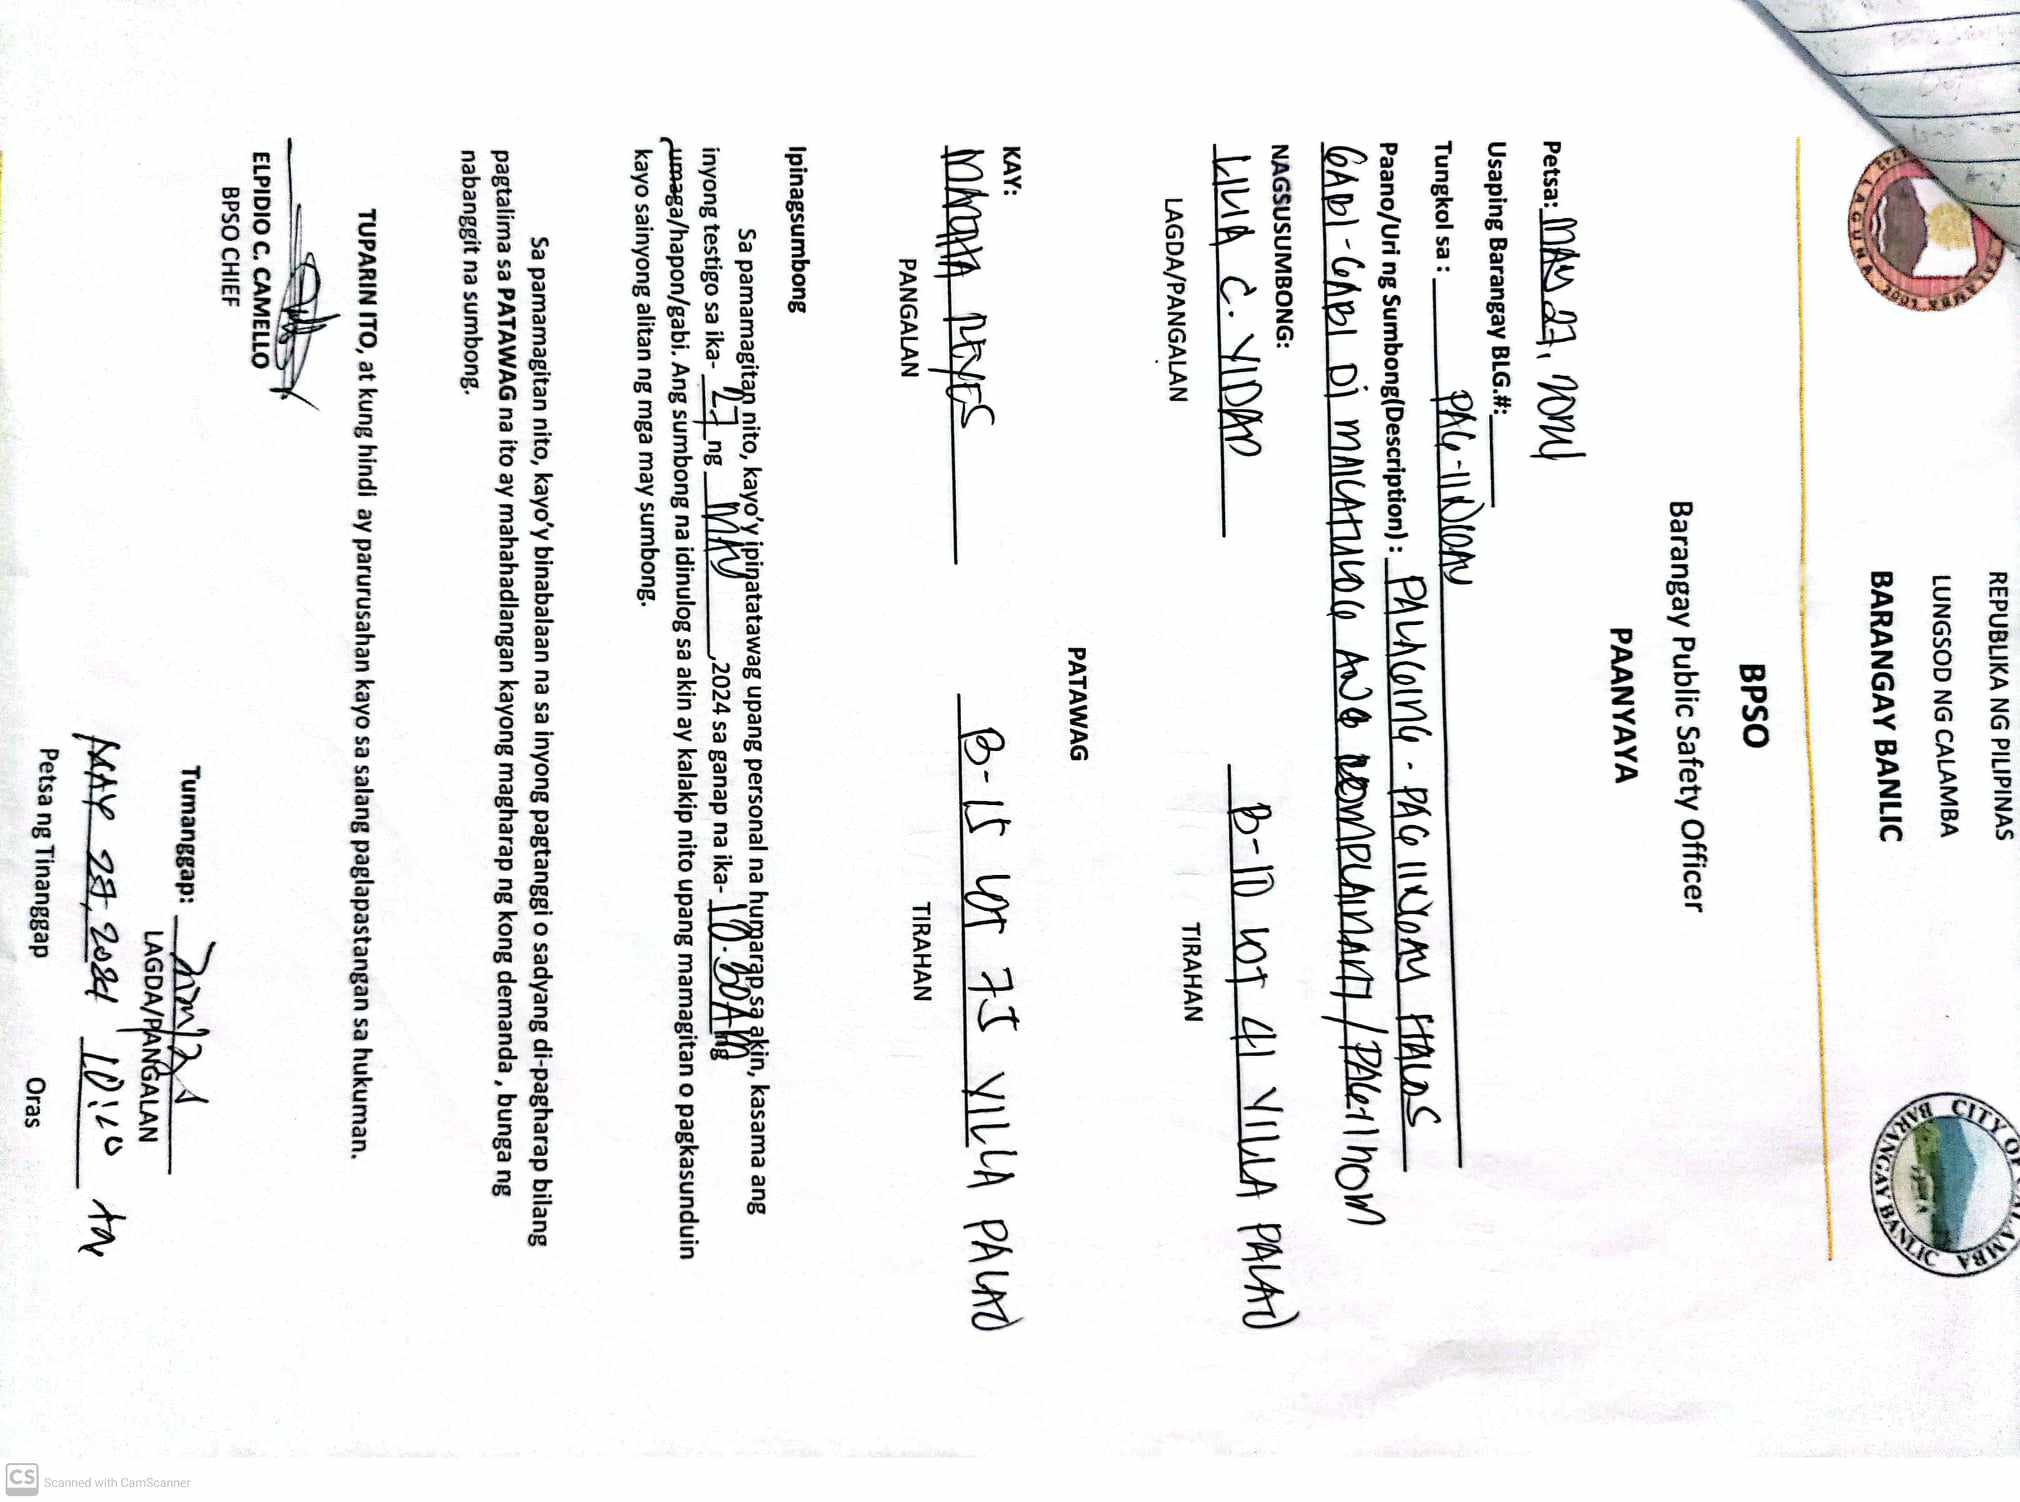 REPUBLIKA NG PILIPINAS
LUNGSOD NG CALAMBA
BARANGAY BANLIC
CALAMBA LAGUNA 2001
CITY OF CALAMBA
BARANGAY BANLIC
BPSO
Barangay Public Safety Officer
PAANYAYA
Petsa: MAY 27, 2024
Usaping Barangay BLG.#:
Tungkol sa :
Paano/Uri ng Sumbong(Description) : PALAGING - PAG IINGAY HALOS
GABI - GABI DI MAKATULOG ANG COMPLAINANT/PAG-IINOM
NAGSUSUMBONG:
LILIA C. VIDAD B-10 LOT 41 VILLA PALAO
LAGDA/PANGALAN TIRAHAN
PATAWAG
KAY:
REYES B-15 LOT 75 VILLA PALAO
PANGALAN TIRAHAN
Ipinagsumbong
Sa pamamagitan nito, kayo'y ipinatatawag upang personal na humarap sa akin, kasama ang
inyong testigo sa ika- 27 ng MAY ,2024 sa ganap na ika- ng
umaga/hapon/gabi. Ang sumbong na idinulog sa akin ay kalakip nito upang mamagitan o pagkasunduin
kayo sainyong alitan ng mga may sumbong.
Sa pamamagitan nito, kayo'y binabalaan na sa inyong pagtanggi o sadyang di-pagharap bilang
pagtalima sa PATAWAG na ito ay mahahadlangan kayong magharap ng kong demanda , bunga ng
nabanggit na sumbong.
TUPARIN ITO, at kung hindi ay parurusahan kayo sa salang paglapastangan sa hukuman.
ELPIDIO C. CAMELLO
BPSO CHIEF
Tumanggap:
LAGDA/PANGALAN
MAY 27, 2024 AM
Petsa ng Tinanggap Oras
CS Scanned with CamScanner